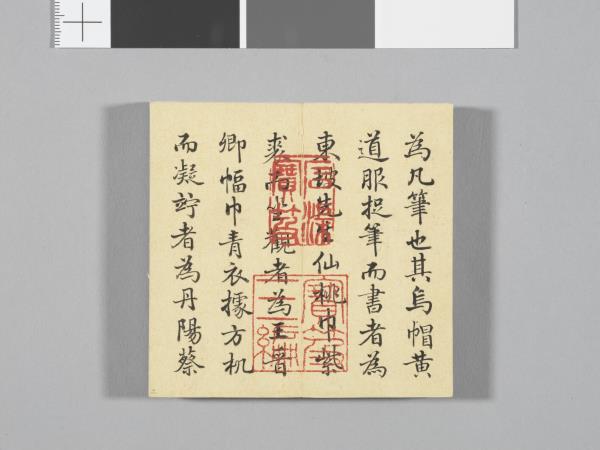 為凡筆也其烏帽黃
道服捉筆而書者為
東坡先生仙桃巾紫
裘而坐觀者為王晉
卿幅巾青衣據方机
而凝竚者為丹陽蔡